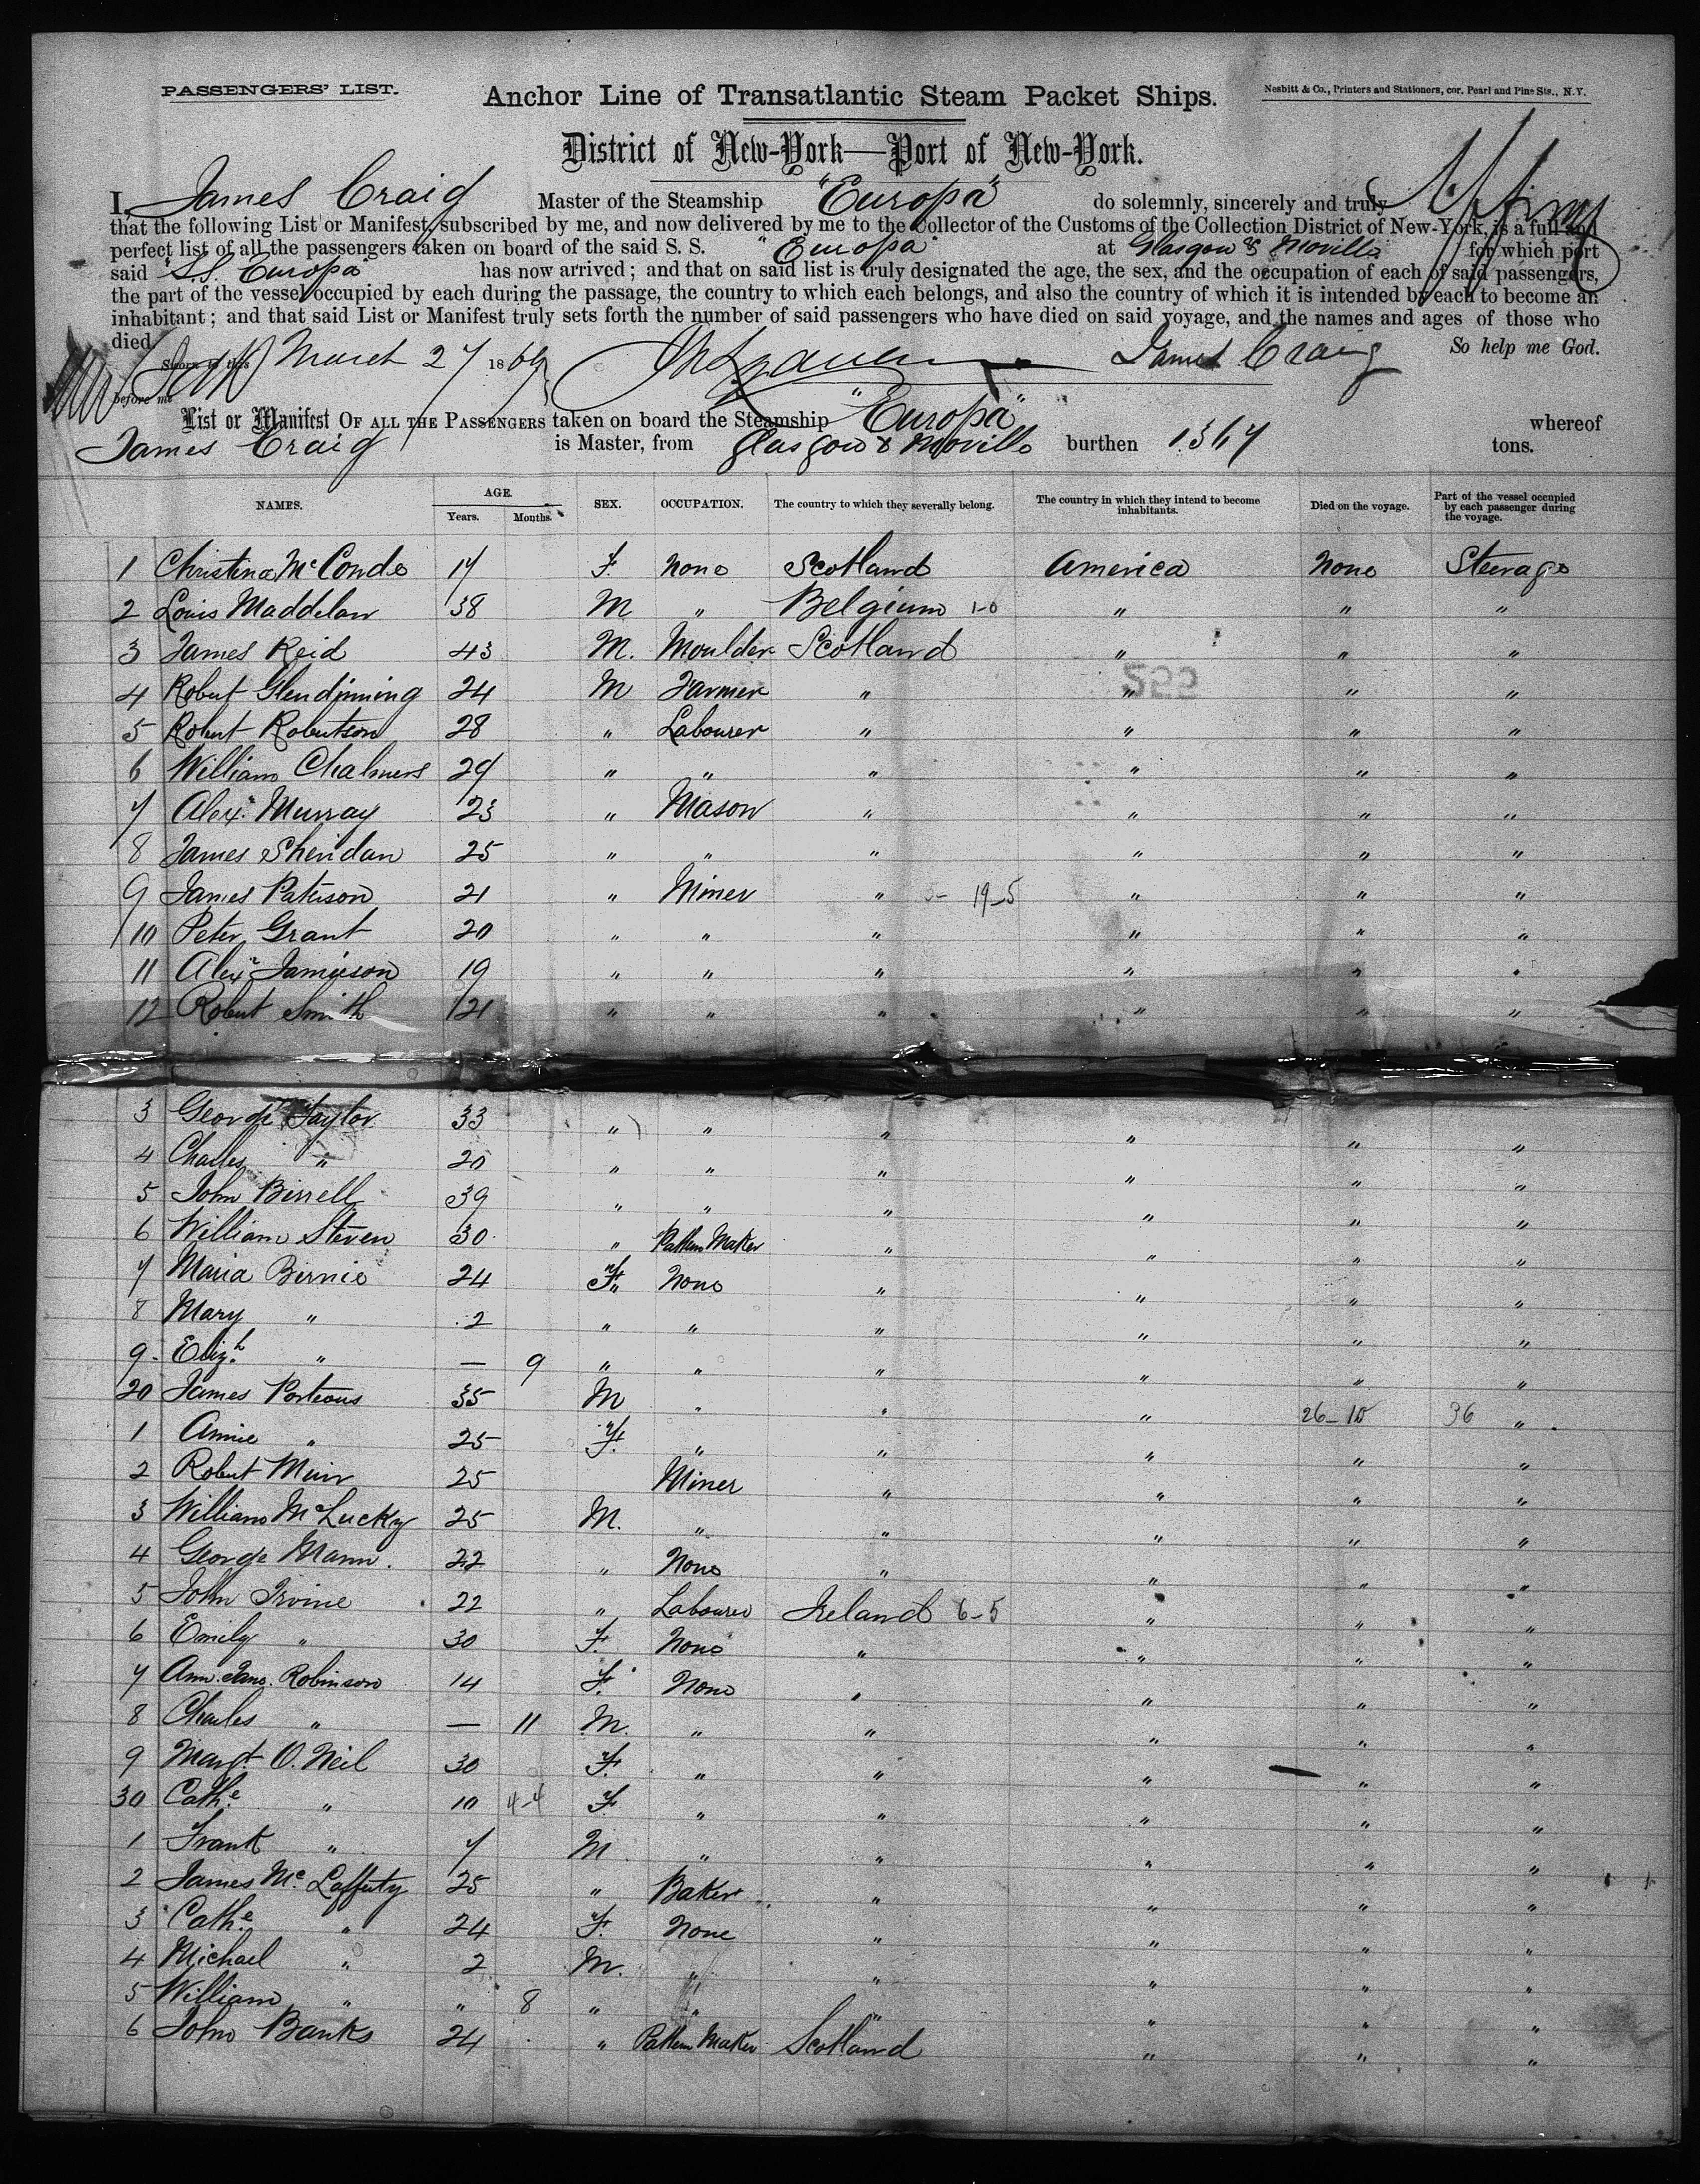 PASSENGERS' LIST.
Anchor Line of Transatlantic Steam Packet Ships.
Nesbitt & Co., Printers and Stationers, cor. Pearl and Pine Sts., N.Y.
District of New-York—Port of New-York.
I, James Craig Master of the Steamship "Europa" do solemnly, sincerely and truly
that the following List or Manifest, subscribed by me, and now delivered by me to the Collector of the Customs of the Collection District of New-York, is a full and
perfect list of all the passengers taken on board of the said S. S. "Europa" at Glasgow & Moville for which port
said S.S. Europa has now arrived; and that on said list is truly designated the age, the sex, and the occupation of each of said passengers,
the part of the vessel occupied by each during the passage, the country to which each belongs, and also the country of which it is intended by each to become an
inhabitant; and that said List or Manifest truly sets forth the number of said passengers who have died on said voyage, and the names and ages of those who
died.
Sworn to this March 27 1869 James Craig So help me God.
before me
List or Manifest OF ALL THE PASSENGERS taken on board the Steamship "Europa" whereof
James Craig is Master, from Glasgow & Moville burthen 1367 tons.
NAMES. AGE. Years. Months. SEX. OCCUPATION. The country to which they severally belong. The country in which they intend to become inhabitants. Died on the voyage. Part of the vessel occupied by each passenger during the voyage.
1 Christina 17 F. None Scotland America None Steerage
2 Louis 38 M " Belgium 1-0 " " "
3 James Reid 43 M. Moulder Scotland " " "
522
4 Robert Glendinning 24 M Farmer " " " "
5 Robert Robertson 28 " Labourer " " " "
6 William Chalmers 29 " " " " " "
7 Alexr. Murray 23 " Mason " " " "
8 James Sheridan 25 " " " " " "
9 James Paterson 21 " Miner " 19-5 " " "
10 Peter Grant 20 " " " " " "
11 Alexr Jamieson 19 " " " " " "
12 Robert Smith 21 " " " " " "
3 George Taylor 33 " " " " " "
4 Charles " 20 " " " " " "
5 John Birrell 39 " " " " " "
6 William Steven 30 " Pattern Maker " " " "
7 Maria Birnie 24 F. None " " " "
8 Mary " 2 " " " " " "
9 Elizh. " — 9 " " " " " "
20 James Porteous 35 M " " " 26-10 36 "
1 Annie " 25 F. " " " " "
2 Robert Muir 25 Miner " " " "
3 William McLucky 25 M. " " " " "
4 George Mann. 22 " None " " " "
5 John Irvine 22 " Labourer Ireland 6-5 " " "
6 Emily " 30 F. None " " " "
7 Ann Jane Robinson 14 F. None " " " "
8 Charles " — 11 M. " " " " "
9 Margt. O.Neil 30 F. " " " " "
30 Cathe. " 10 4-4 F " " " " "
1 Frank " 7 M " " " " "
2 James Mc Lafferty 25 " Baker " " " "
3 Cathe. " 24 F. None " " " "
4 Michael " 2 M. " " " " "
5 William " " 8 " " " " " "
6 John Banks 24 " Pattern Maker Scotland " " "